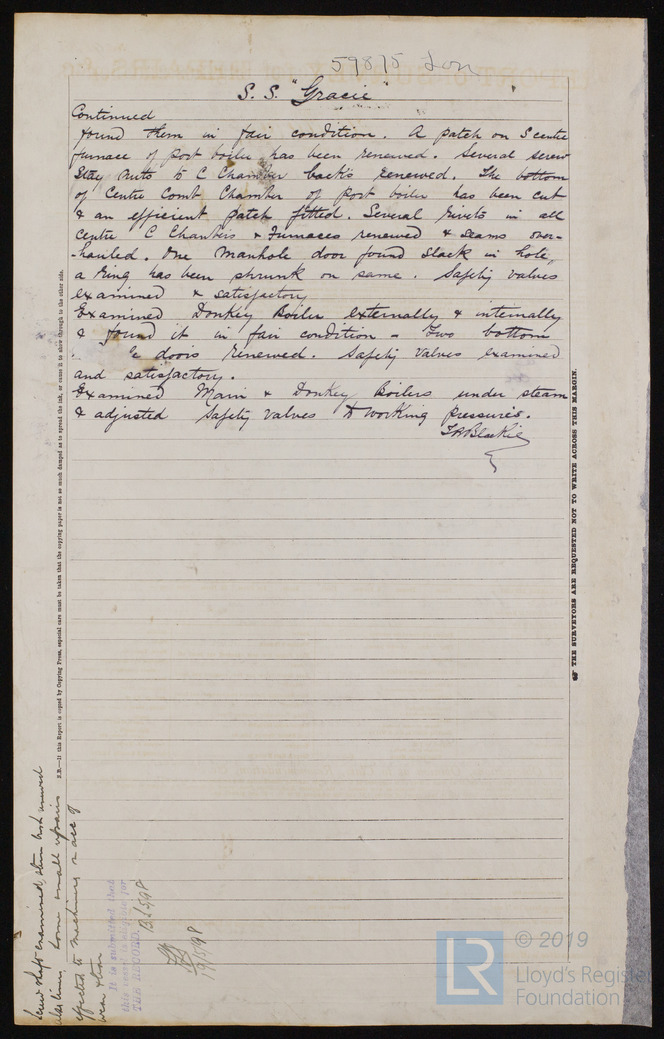 59875 Lon
S. S. "Gracie"
Continued
found them in fair condition. A patch on S centre
furnace of port boiler has been renewed. Several screw
Stay nuts to C Chamber backs renewed. The bottom
of Centre Comb Chamber of port boiler has been cut
& an efficient patch fitted. Several rivets in all
centre C Chambers & Furnaces renewed & seams over-
-hauled. One manhole door found slack in hole,
a ring has been shrunk on same. Safety valves
examined & satisfactory
Examined Donkey Boiler externally & internally
& found it in fair condition - Two bottom
doors renewed. Safety valves examined
and satisfactory.
Examined Main & Donkey Boilers under steam
& adjusted Safety valves to working pressures.
Blackie
N.B.—If this Report is copied by Copying Press, especial care must be taken that the copying paper is not so much damped as to spread the ink, or cause it to show through to the other side.
☞ THE SURVEYORS ARE REQUESTED NOT TO WRITE ACROSS THIS MARGIN.
Screw shaft examined, stern bush renewed
some small repairs
effected to machinery on acc of
wear & tear
It is submitted that
this vessel is eligible for
THE RECORD
© 2019
LR
Lloyd's Register
Foundation